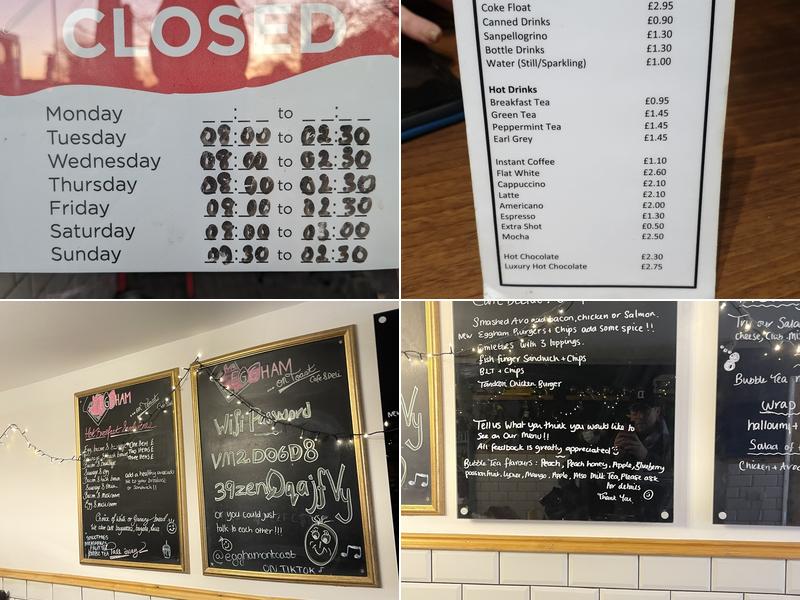 CLOSED
Monday __:__ to __:__
Tuesday 08:00 to 02:30
Wednesday 08:00 to 02:30
Thursday 08:00 to 02:30
Friday 08:00 to 02:30
Saturday 08:00 to 03:00
Sunday 09:30 to 02:30
Coke Float £2.95
Canned Drinks £0.90
Sanpellegrino £1.30
Bottle Drinks £1.30
Water (Still/Sparkling) £1.00
Hot Drinks
Breakfast Tea £0.95
Green Tea £1.45
Peppermint Tea £1.45
Earl Grey £1.45
Instant Coffee £1.10
Flat White £2.60
Cappuccino £2.10
Latte £2.10
Americano £2.00
Espresso £1.30
Extra Shot £0.50
Mocha £2.50
Hot Chocolate £2.30
Luxury Hot Chocolate £2.75
EGGHAM
on Toast
Hot Breakfast
Bacon & Sausage
Sausage & egg
Bacon & mushroom
Egg & mushroom
add a healthy avocado
to your breakfast
or Sandwich!!
Choice of white or granary bread
We also do baguettes, bagels,
SMOOTHIES
MILKSHAKES
BUBBLE TEA Take Away
EGGHAM
on Toast
Cafe & Deli
Wifi Password
VM2DO6D8
39zenDqajfVy
or you could just
talk to each other!!!
@egghamontoast
ON TIKTOK
Smashed Avo and bacon, chicken or Salmon.
NEW Eggham Burgers + Chips add some spice!!
Omlettes with 3 toppings.
fish finger Sandwich + Chips
BLT + Chips
Tandoori Chicken Burger
Tell us What you think you would like to
See on Our Menu!!
All feedback is greatly appreciated
Bubble Tea flavours: Peach, Peach honey, Apple, Blueberry
passionfruit, Lychee, Mango, Apple, Also Milk Tea, Please ask
for details
Thank You
Try our Sala
cheese, Club, Mix
Bubble Tea
Wrap
halloumi +
Salad of
Chicken + Avoc